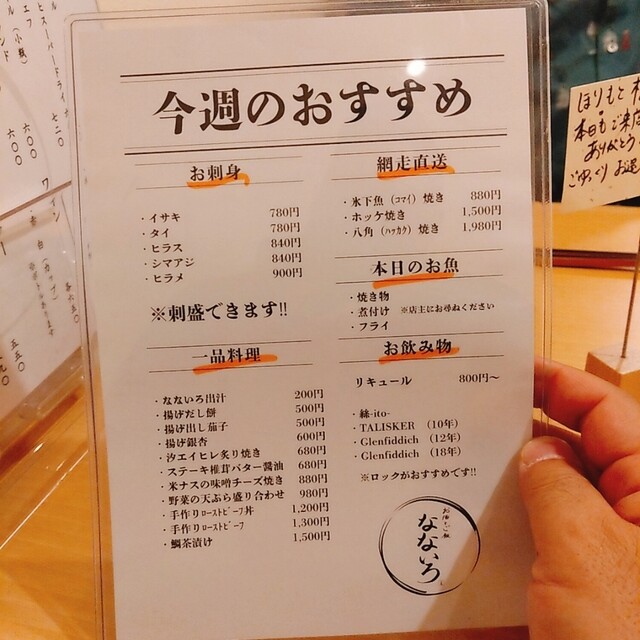 今週のおすすめ
お刺身
・イサキ 780円
・タイ 780円
・ヒラス 840円
・シマアジ 840円
・ヒラメ 900円
※刺盛できます!!
一品料理
・なないろ出汁 200円
・揚げだし餅 500円
・揚げ出し茄子 500円
・揚げ銀杏 600円
・汐エイヒレ炙り焼き 680円
・ステーキ椎茸バター醤油 680円
・米ナスの味噌チーズ焼き 880円
・野菜の天ぷら盛り合わせ 980円
・手作りローストビーフ丼 1,200円
・手作りローストビーフ 1,300円
・鯛茶漬け 1,500円
網走直送
・氷下魚（コマイ）焼き 880円
・ホッケ焼き 1,500円
・八角（ハッカク）焼き 1,980円
本日のお魚
・焼き物
・煮付け ※店主にお尋ねください
・フライ
お飲み物
リキュール 800円～
・絲-ito-
・TALISKER （10年）
・Glenfiddich （12年）
・Glenfiddich （18年）
※ロックがおすすめです!!
なないろ
ほりもと
本日もご来店
ありがとう
ごゆっくり お過
スーパードライ 七二〇
（小瓶） 六〇〇
六〇〇
ワイン
白（カップ）